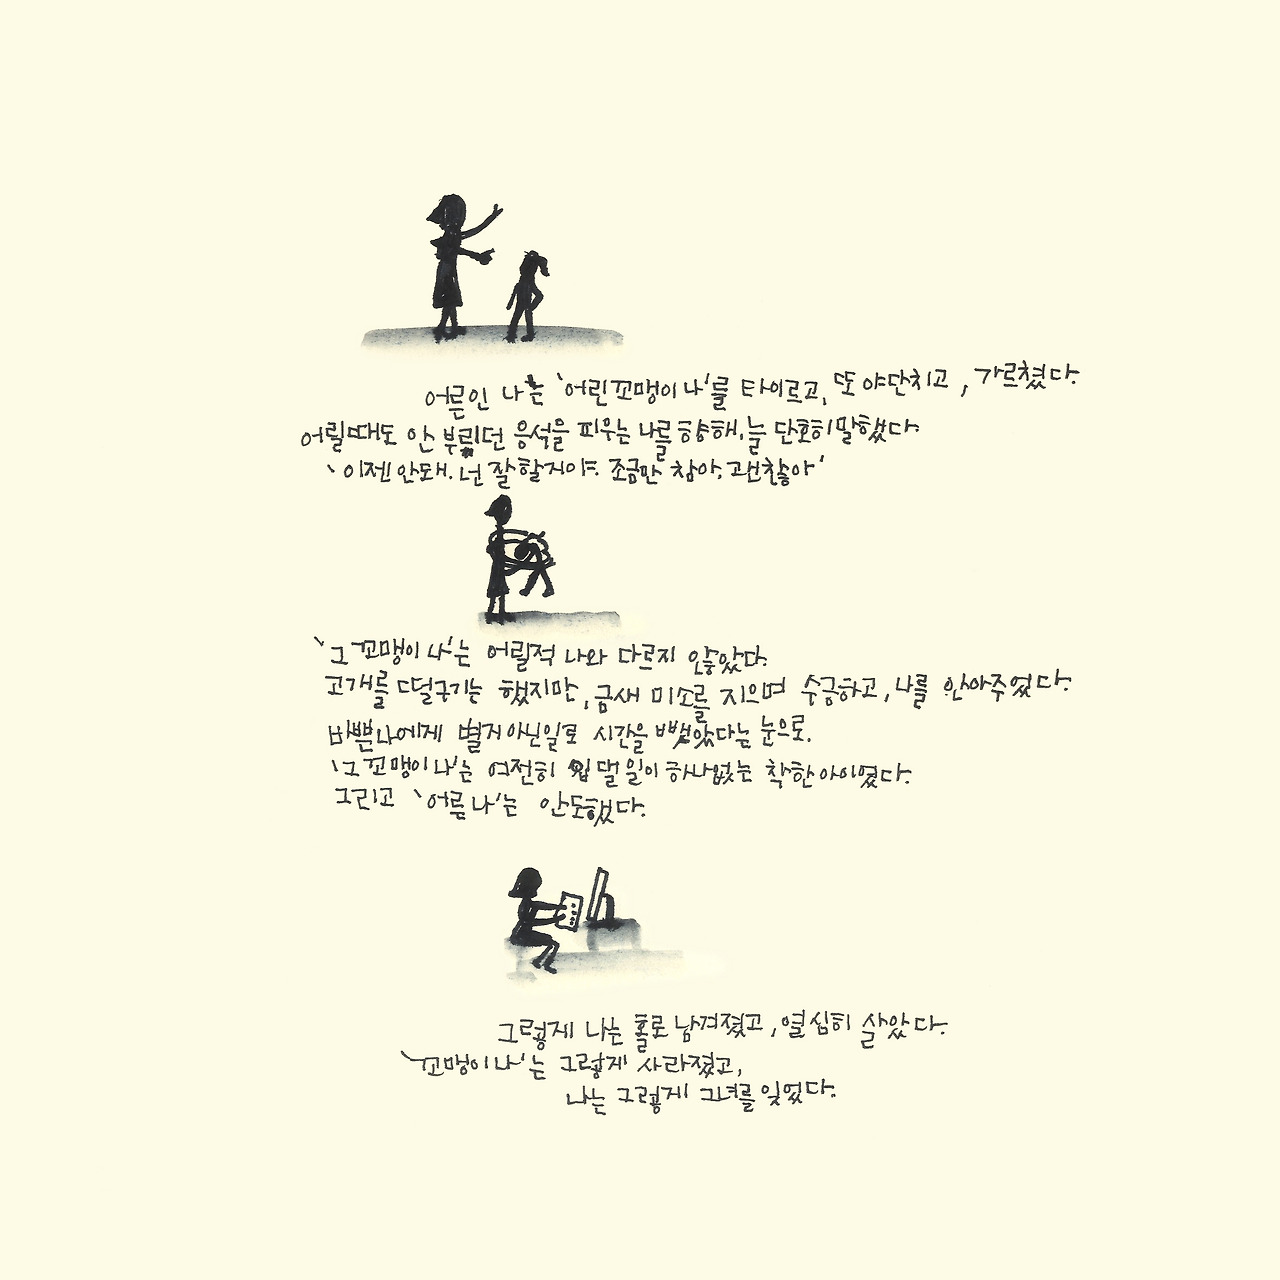 어른인 나는 '어린꼬맹이 나'를 타이르고, 또 야단치고, 가르쳤다.
어릴때도 안 부렸던 응석을 피우는 나를 향해, 늘 단호히 말했다.
'이젠 안돼. 넌 잘할거야. 조금만 참아, 괜찮아'
'그 꼬맹이 나'는 어릴적 나와 다르지 않았다.
고개를 떨구기는 했지만, 금새 미소를 지으며 수긍하고, 나를 안아주었다.
바쁜 나에게 별거 아닌일로 시간을 뺏았다는 눈으로.
'그 꼬맹이 나'는 여전히 입 댈 일이 하나없는 착한 아이였다.
그리고 '어른 나'는 안도했다.
그렇게 나는 홀로 남겨졌고, 열심히 살았다.
'꼬맹이 나'는 그렇게 사라졌고,
나는 그렇게 그녀를 잊었다.